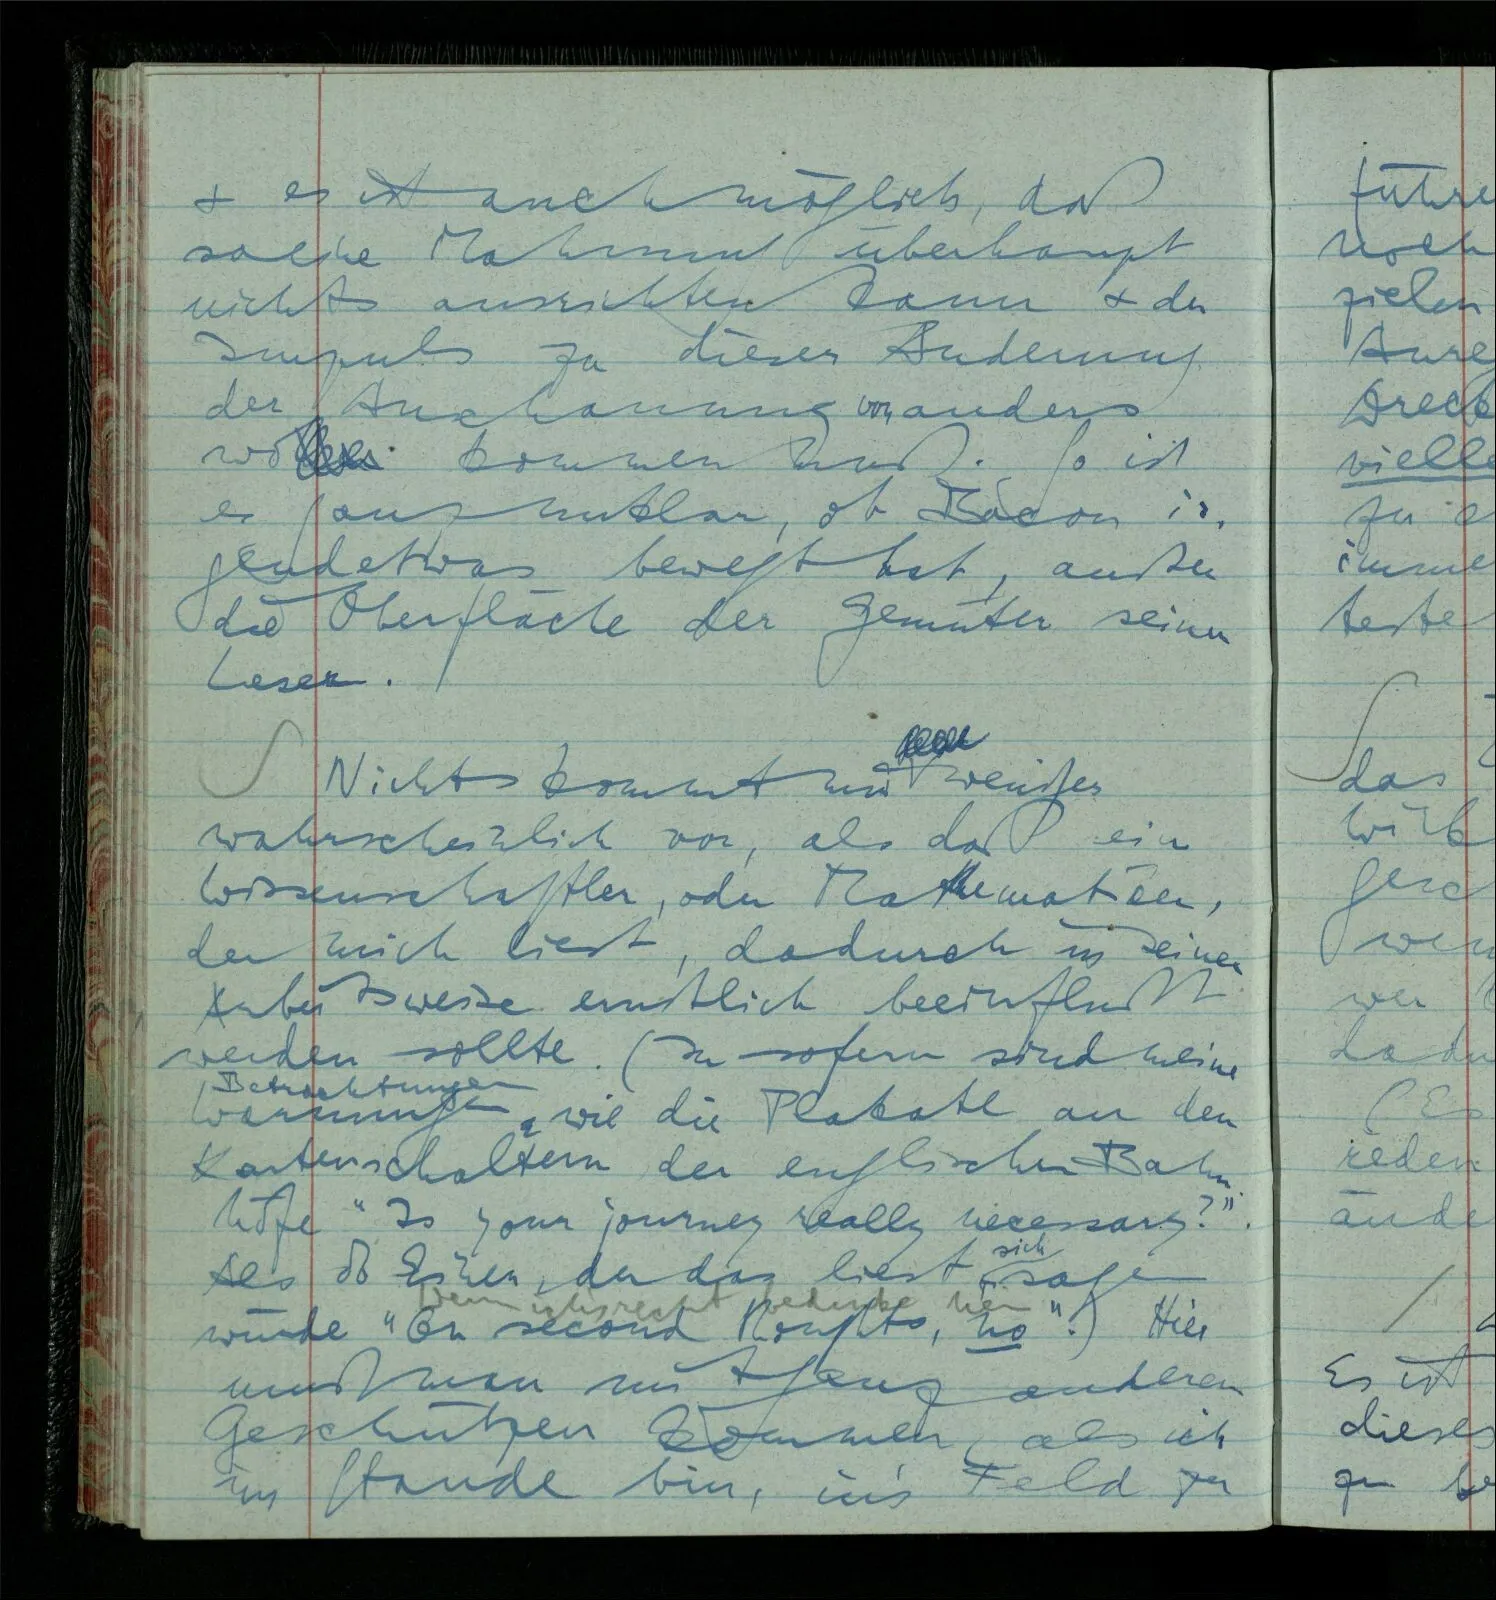 & es ist auch möglich, daß
solche Mahnung überhaupt
nichts ausrichten kann & der
Impuls zu dieser Änderung
der Anschauung von anders
wo kommen muß. So ist
es ganz unklar, ob Bacon ir-
gendetwas bewegt hat, außer
die Oberfläche der Gemüter seiner
Leser.
Nichts kommt mir weniger
wahrscheinlich vor, als daß ein
Wissenschaftler, oder Mathematiker,
der mich liest, dadurch in seiner
Arbeitsweise ernstlich beeinflußt
werden sollte. (In sofern sind meine
Betrachtungen
Warnungen, wie die Plakate an den
Kartenschaltern der englischen Bahn-
höfe "Is your journey really necessary?".
Als ob Einer, der das liest, sich sagen
wenn ichs recht bedenke nein
würde "On second thoughts, no".) Hier
muß man mit ganz anderen
Geschützen kommen, als ich
im Stande bin, in's Feld zu
führe
noch
zielen
Anre
Dreck
vielle
zu
imme
teste
das
wir
gesc
wen
wer
dadu
(Es
reden
ände
Es ist
dieses
zu be